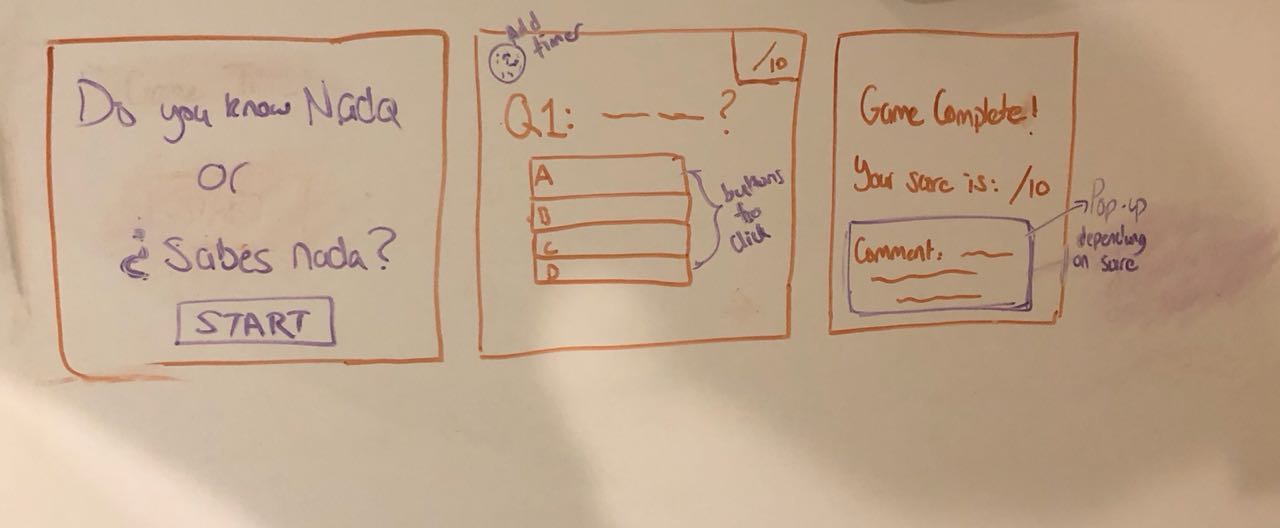 Do you know Nada
or
¿Sabes nada?
START
Add
timer
/10
Q1: __ __ ?
A
B
C
D
buttons
to
click
Game Complete!
Your score is: /10
Comment:
Pop-up
depending
on score